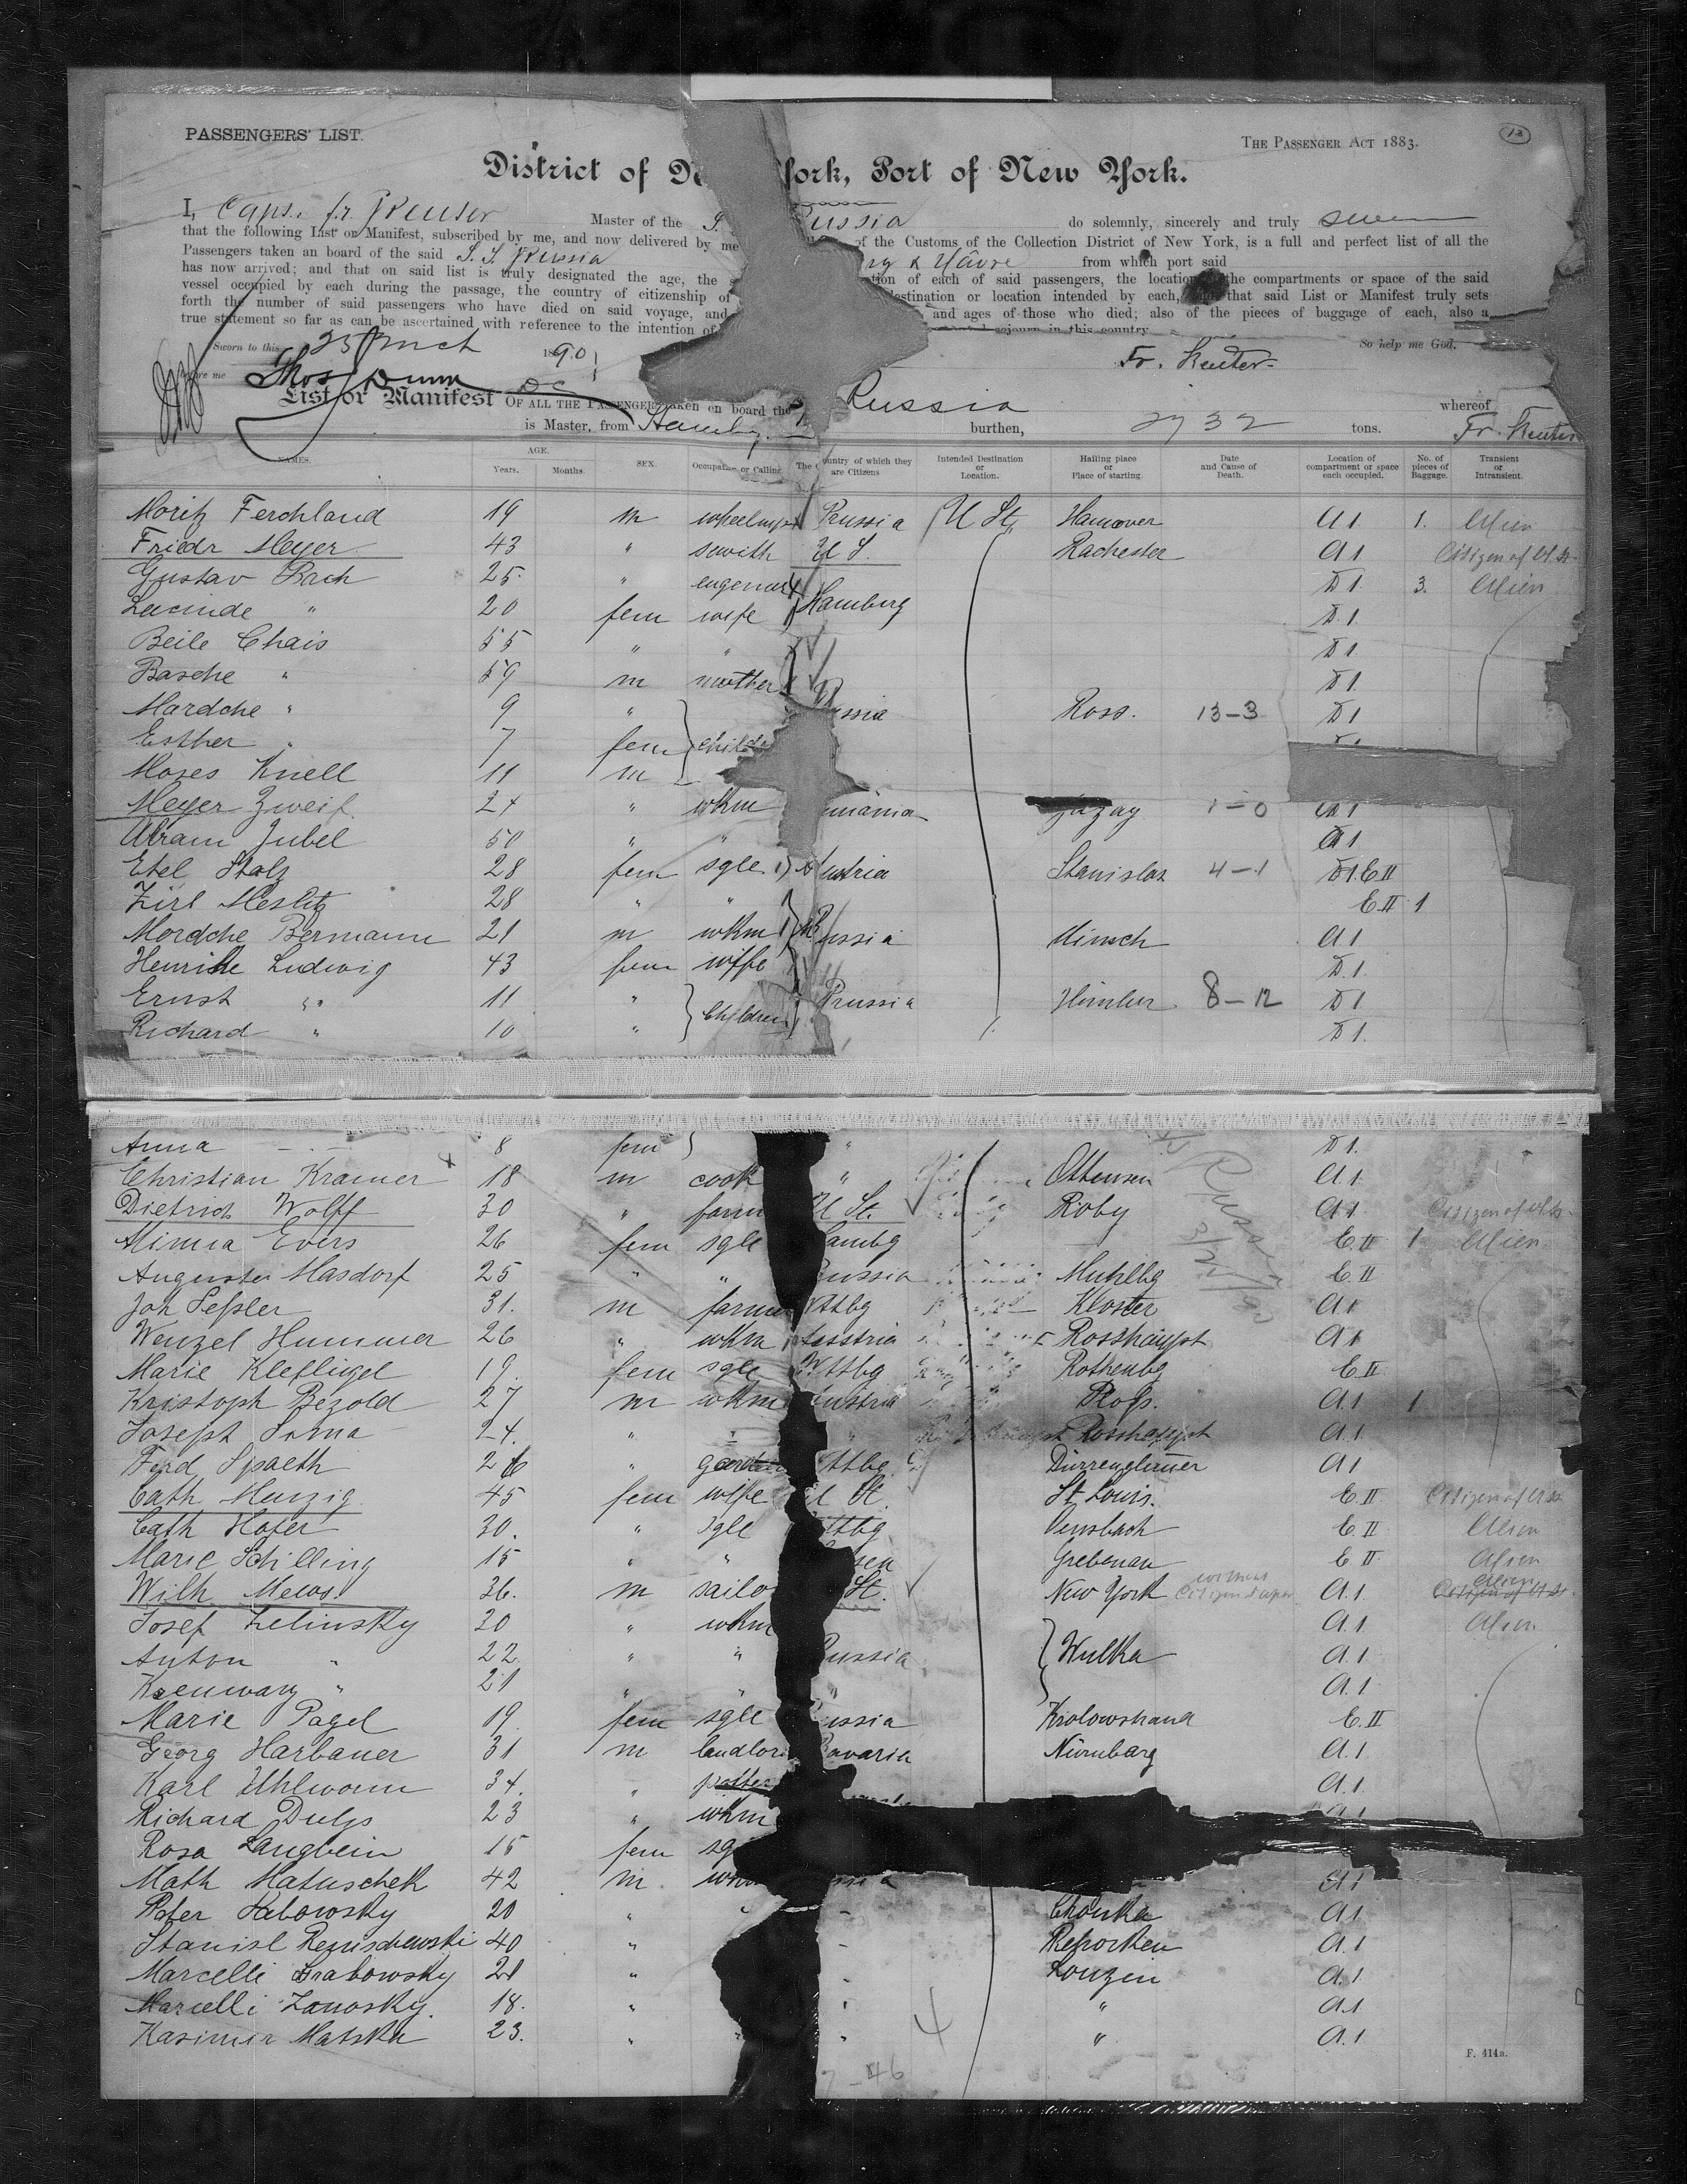 PASSENGERS' LIST.
THE PASSENGER ACT 1883.
13
District of Ne York, Port of New York.
I, Capt. fr. Reuter Master of the S. Russia do solemnly, sincerely and truly swear
that the following List or Manifest, subscribed by me, and now delivered by me of the Customs of the Collection District of New York, is a full and perfect list of all the
Passengers taken on board of the said S. S. Russia & Hâvre from which port said
has now arrived; and that on said list is truly designated the age, the of each of said passengers, the location of the compartments or space of the said
vessel occupied by each during the passage, the country of citizenship of destination or location intended by each, that said List or Manifest truly sets
forth the number of said passengers who have died on said voyage, and and ages of those who died; also of the pieces of baggage of each, also a
true statement so far as can be ascertained with reference to the intention of sojourn in this country
Sworn to this 25 March 1890 So help me God,
me Thos Dunn DC Fr. Reuter
List or Manifest OF ALL THE PASSENGERS taken on board the Russia whereof
Fr. Reuter is Master, from Hambg. burthen, 2732 tons.
NAMES. AGE. Years. Months. SEX. Occupation or Calling. The Country of which they are Citizens Intended Destination or Location. Hailing place or Place of starting. Date and Cause of Death. Location of compartment or space each occupied. No. of pieces of Baggage. Transient or Intransient.
Moritz Ferchland 19 m Prussia U St. Hannover A 1 1. Alien
Friedr Meyer 43 " smith U S. Rachester A 1 Citizen of U.St.
Gustav Bach 25. " D 1. 3. Alien
Lucinde " 20 fem wife Hamburg D. 1.
Beile Chais 55 " " D 1
Basche " 59 m mother D 1.
Mardche " 9 " ussia Ross. 13-3 D 1
Esther " 7 fem child
Moses Knell 11 m
Meyer Zweif. 24 " wkm mänia 1-0 A 1
Abram Jubel 50 " " A 1
Etel Stolz 28 fem sgle Austria Stanislaz 4-1 D1. E II
Zirl Meslitz 28 " " E II 1
Mordche Bermann 21 m wkm Russia Minsch A 1
Henrikke Ludwig 43 fem wife D. 1.
Ernst " 11 " Children Prussia Himbur 8-12 D 1
Richard " 10 " D 1.
Anna 8 fem " D 1.
Christian Kramer 18 m cook " Ottensen A 1.
Dietrich Wolff 30 " farm U St. Roby A 1 Citizen of U.St.
Minna Evers 26 fem sgle ambg E. II 1 Alien
Auguste Masdorf 25 " " russia Muhlbg E. II
Joh Seßler 31. m farmer Wttbg Kloster A 1
Wenzel Hummer 26 " wkm Austria Rosshaupt A 1
Marie Klefligel 19. fem sgle Wttbg Rothenbg E. II
Kristoph Bezold 27 m wkm Austria Roß. A. 1 1
Joseph Sorna 24. " " " Rosshaupt A. 1.
Ferd Spaeth 26 " garden ttbg A 1
Cath Menzig 45 fem wife U St. St Louis. E. II Citizen of U.St.
Cath Hofer 30. " sgle ttbg Onsbach E. II Alien
Marie Schilling 15 " " ssen Grebenau E II. Alien
Wilh Mews 36. m sailo St. New York without Citizens paper A. 1. Alien
Josef Zelinsky 20 " wkm A. 1. Alien
Anton " 22 " " Russia Wulka A. 1.
" 21 " " " A. 1.
Marie Pagel 19. fem sgle ussia Krolowshand E. II
Georg Harbauer 31 m landlor Bavaria Nürnbarg A. 1.
Karl Uhlworm 34. " A. 1.
Richard Dulps 23 " wkm
Rosa Langbein 15 fem sg
Math Matuschek 42 m. wkm A 1
Peter Habowsky 20 " " Chonka A 1
Stanisl Reznischewski 40 " Reporken A. 1.
Marcelli Grabowsky 21 " Louzin A. 1.
Marcelli Zanosky. 18. " " A. 1
Kasimir Matska 23. " " " A. 1.
4
46
F. 414a.